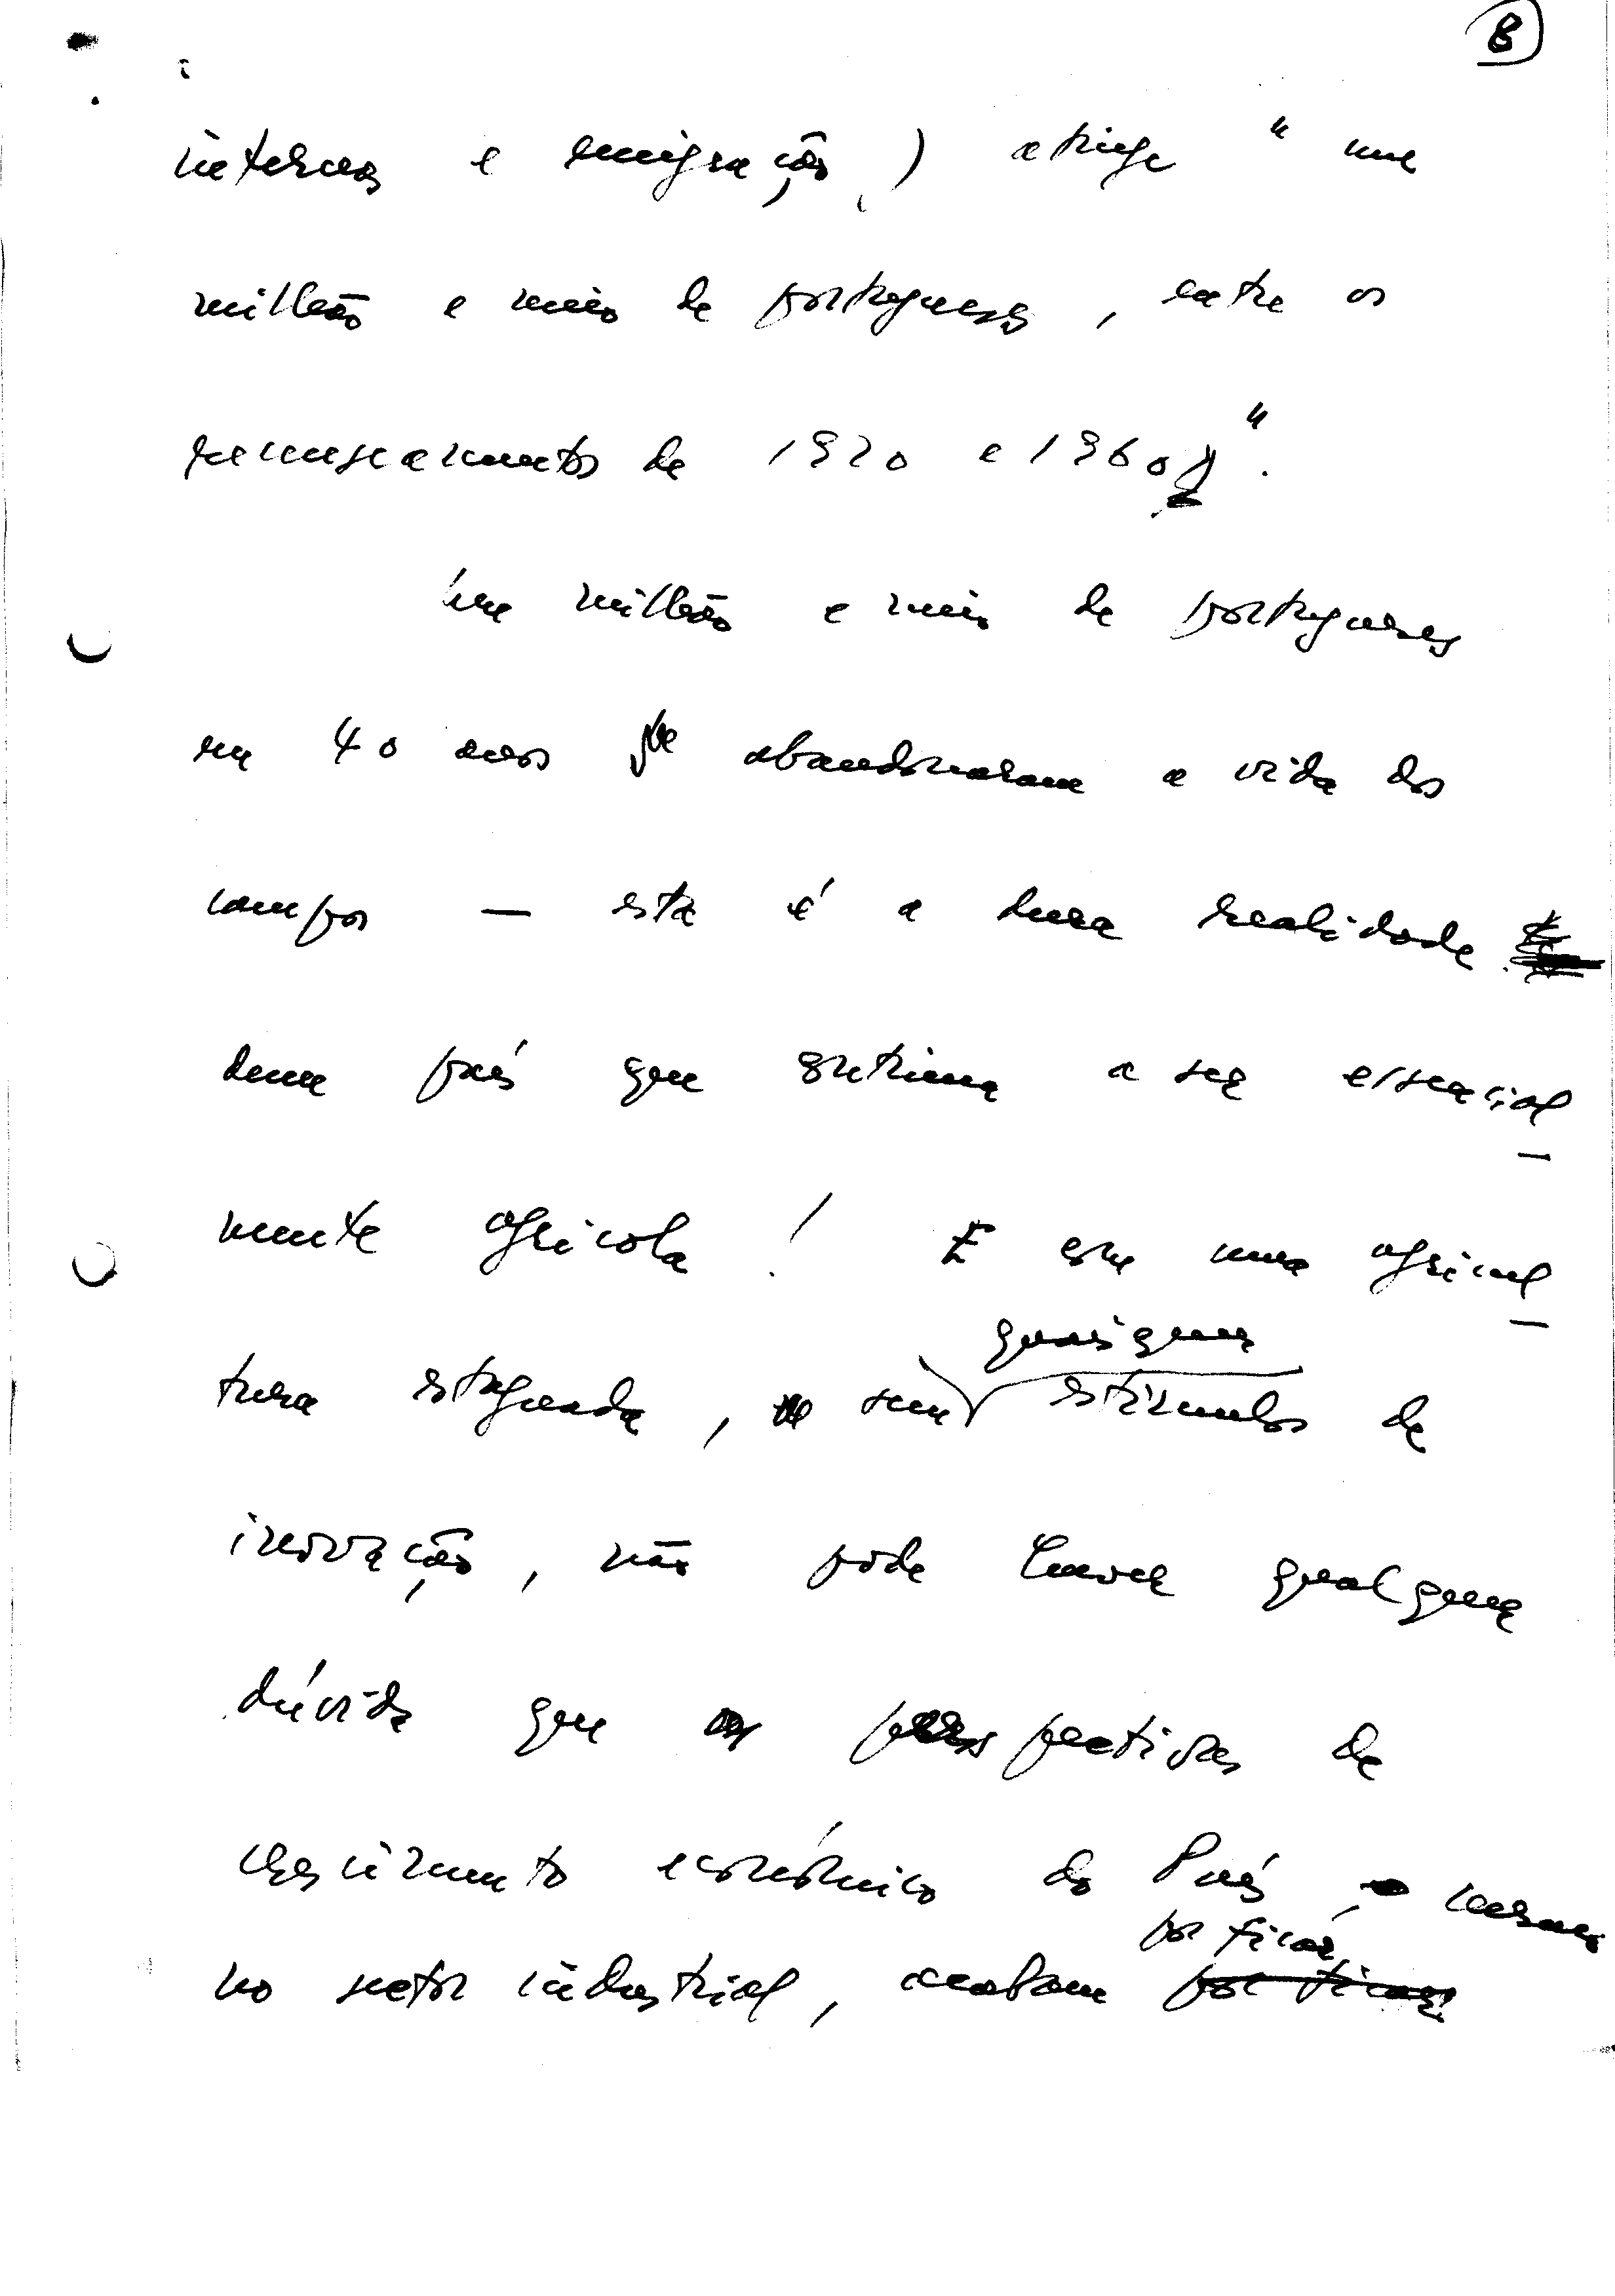 8
internas e emigração) atinge "um
milhão e meio de portugueses, entre os
recenseamentos de 1920 e 1960".
Um milhão e meio de portugueses
em 40 anos abandonaram a vida dos
campos — esta é a dura realidade
dum país que continua a ser essencial
mente agrícola! E com uma agricul
tura estagnada, sem quaisquer estímulos de
inovação, não pode haver qualquer
dúvida que as perspectivas de
crescimento económico do País, mesmo
no sector industrial, acabam por ficar